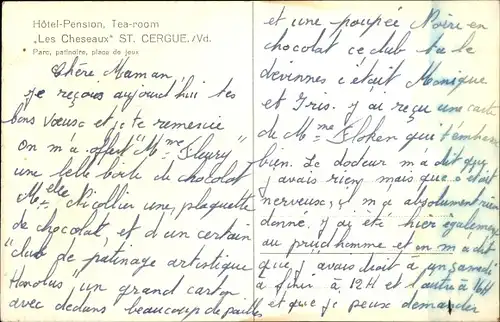 Hôtel-Pension, Tea-room
„Les Cheseaux" ST. CERGUE./Vd.
Parc, patinoire, place de jeux
Chère Maman,
je reçois aujourd'hui tes
bons vœux et je te remercie
On m'a offert "Mme Fleury"
une belle boîte de chocolat
Melle Nicollier une plaquette
de chocolat, et d'un certain
"club de patinage artistique
" un grand carton
avec dedans beaucoup de
et une poupée Noire en
chocolat ce club tu le
devinnes c'était Monique
et Gris. j'ai reçu une carte
de Mme qui t'embrasse
bien. Le docteur m'a dit que
j'avais rien, mais que c'était
nerveuse, il m'a absolument rien
donné, j'ai été hier également
au prud'homme et on m'a dit
que j'avais droit à un samedi
à finir à 12H et l'autre à 16H
et que je peux demander